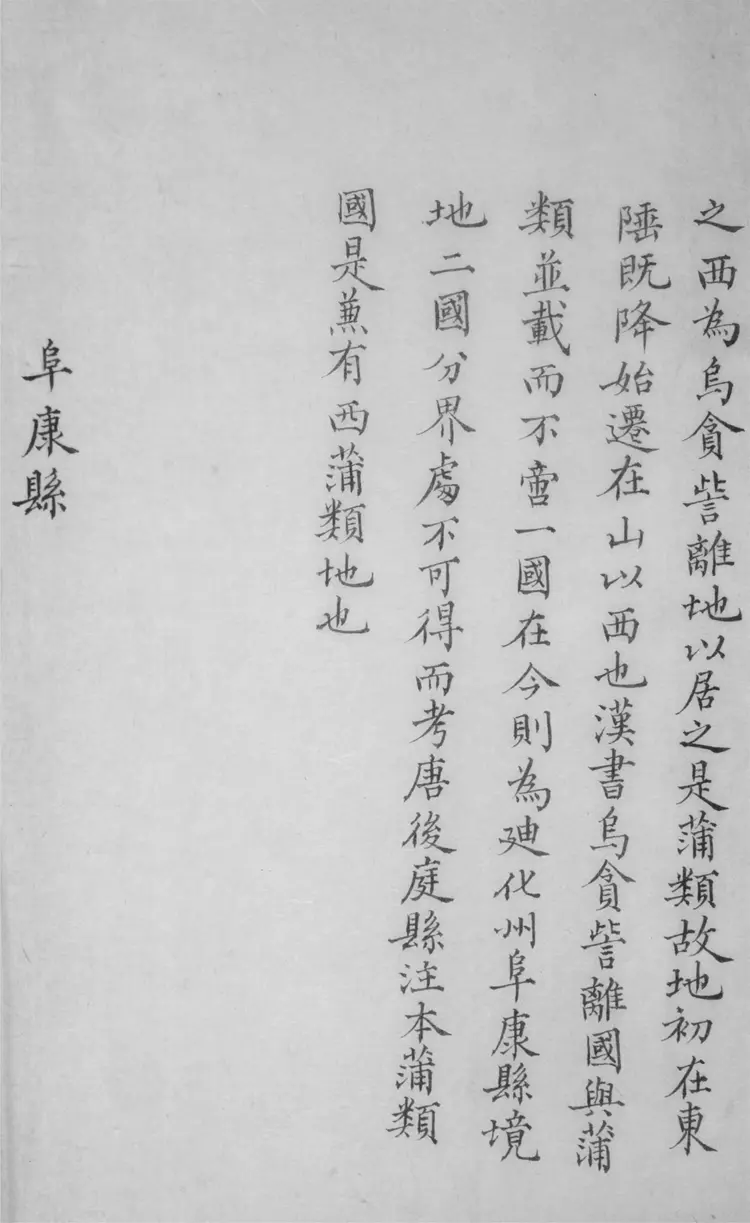 之西為烏貪訾離地以居之是蒲類故地初在東
陲既降始遷在山以西也漢書烏貪訾離國與蒲
類並載而不啻一國在今則為廸化州阜康縣境
地二國分界處不可得而考唐後庭縣注本蒲類
國是蕪有西蒲類地也
阜康縣